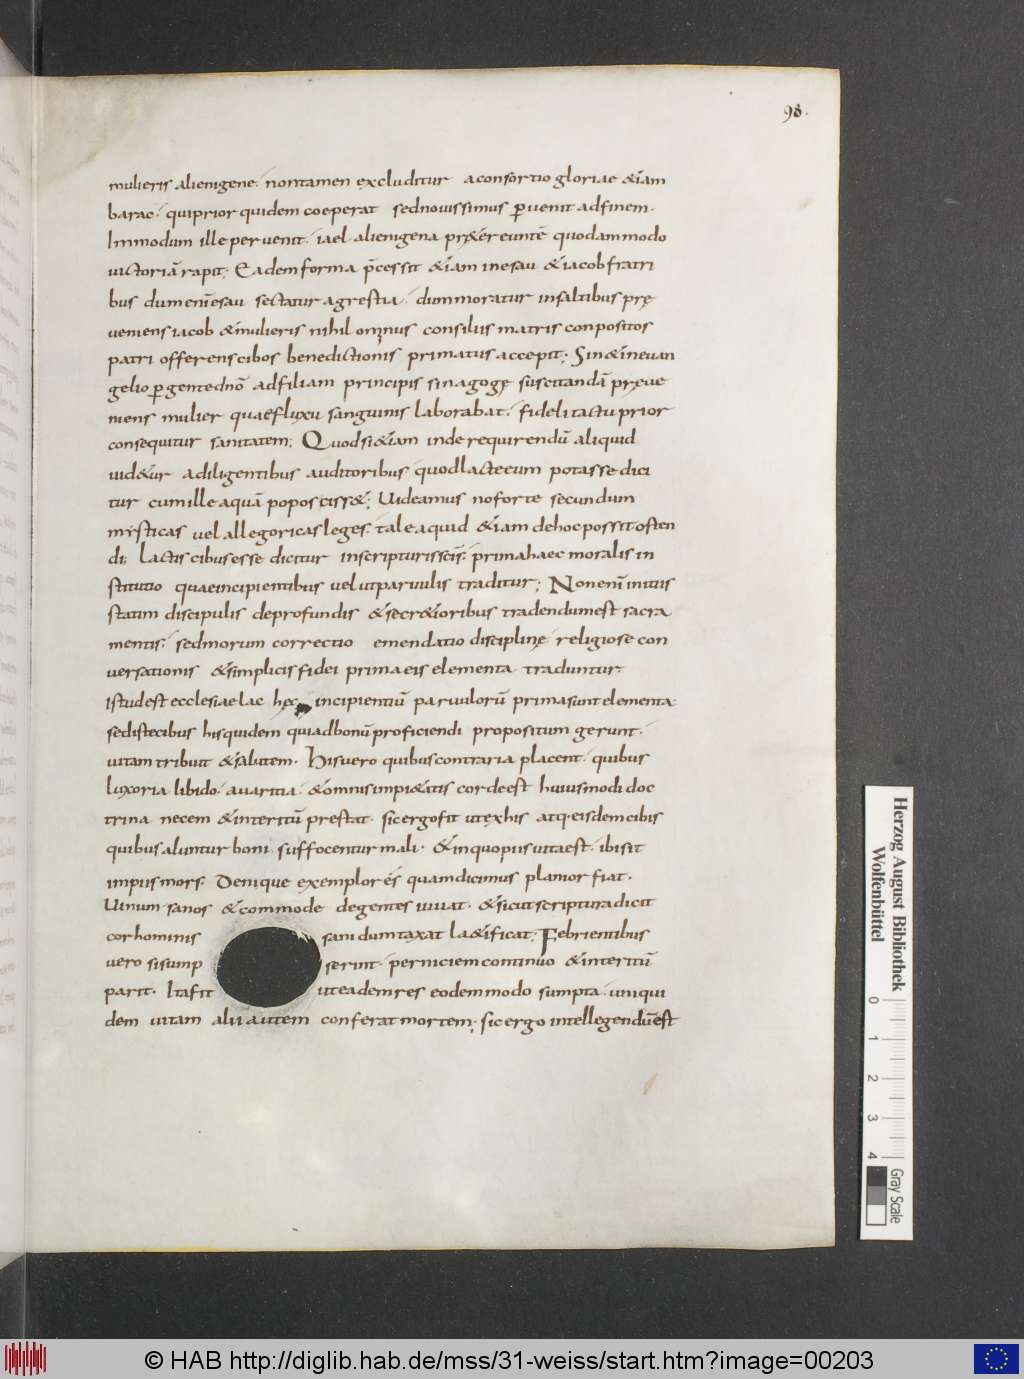 98.
mulieris alienigene. nontamen excluditur aconsortio gloriae &iam
barac. quiprior quidem coeperat sednouissimus ꝑuenit adfinem.
Immodum ille peruenit. iael alienigena pr&ereuntē quodammodo
uictoriā rapit; Eadem forma p̄cessit &iam inesau &iacob fratri
bus dumenī esau sectatur agrestia. dummoratur insaltibus prę
ueniens iacob &mulieris nihil omnus consiliis matris conpositos
patri offerens cibos benedictionis primatus accepit; Sin&ineuan
gelio ꝑgente dn̄o adfiliam principis sinagogę suscitandā pręue
niens mulier quaefluxu sanguinis laborabat. fideli tactu prior
consequitur sanitatem; Quodsi&iam inde requirendū aliquid
uid&ur adiligentibus auditoribus quodlactecum potasse dici
tur cumille aquā poposciss&; Uideamus noforte secundum
mysticas uel allegoricas leges. tale aquid &iam dehoc possit osten
di; Lactis cibus esse dicitur inscripturis scīs. primahaec moralis in
stitutio quaeincipientibus uelutparuulis traditur; Nonenī initiis
statim discipulis deprofundis &secr&ioribus tradendumest sacra
mentis. sedmorum correctio emendatio disciplinę religiose con
uersationis &simplicis fidei primaeis elementa traduntur.
Istudest ecclesiae lac hęc incipientiū paruulorū primasunt elementa.
sedistecibus hisquidem quiadbonū proficiendi propositum gerunt.
uitam tribuit &salutem. Hisuero quibuscontraria placent. quibus
luxoria libido. auaritia. &omnisimpi&tis cordeest huiusmodi doc
trina necem &interitū prestat. sicergofit utexhis atq· eisdemcibis
quibusaluntur boni suffocentur mali. &inquopiis uitaest. ibisit
impiis mors. Denique exemplo rēs quamdicimus planior fiat.
Uinum sanos &commode degentes iuuat. &sicut scripturadicit
corhominis sani dumtaxat la&ificat; Febrientibus
uero sisump serint. perniciem continuo &interitū
parit. Itafit uteademres eodemmodo sumpta. uniqui
dem uitam alii autem conferat mortem; sicergo intellegendūest
Herzog August Bibliothek
Wolfenbüttel
0 1 2 3 4
Gray Scale
© HAB http://diglib.hab.de/mss/31-weiss/start.htm?image=00203